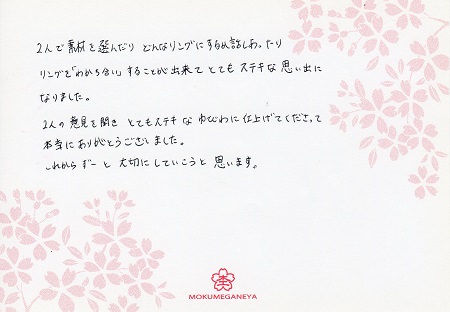 2人で素材を選んだり どんなリングにするか話しあったり
リングを「わかち合い」することが出来て とても ステキな 思い出に
なりました。
2人の意見を聞き とてもステキ な ゆびわに仕上げてくださって
本当にありがとうございました。
これから ずーっと 大切にしていこうと 思います。
MOKUMEGANEYA